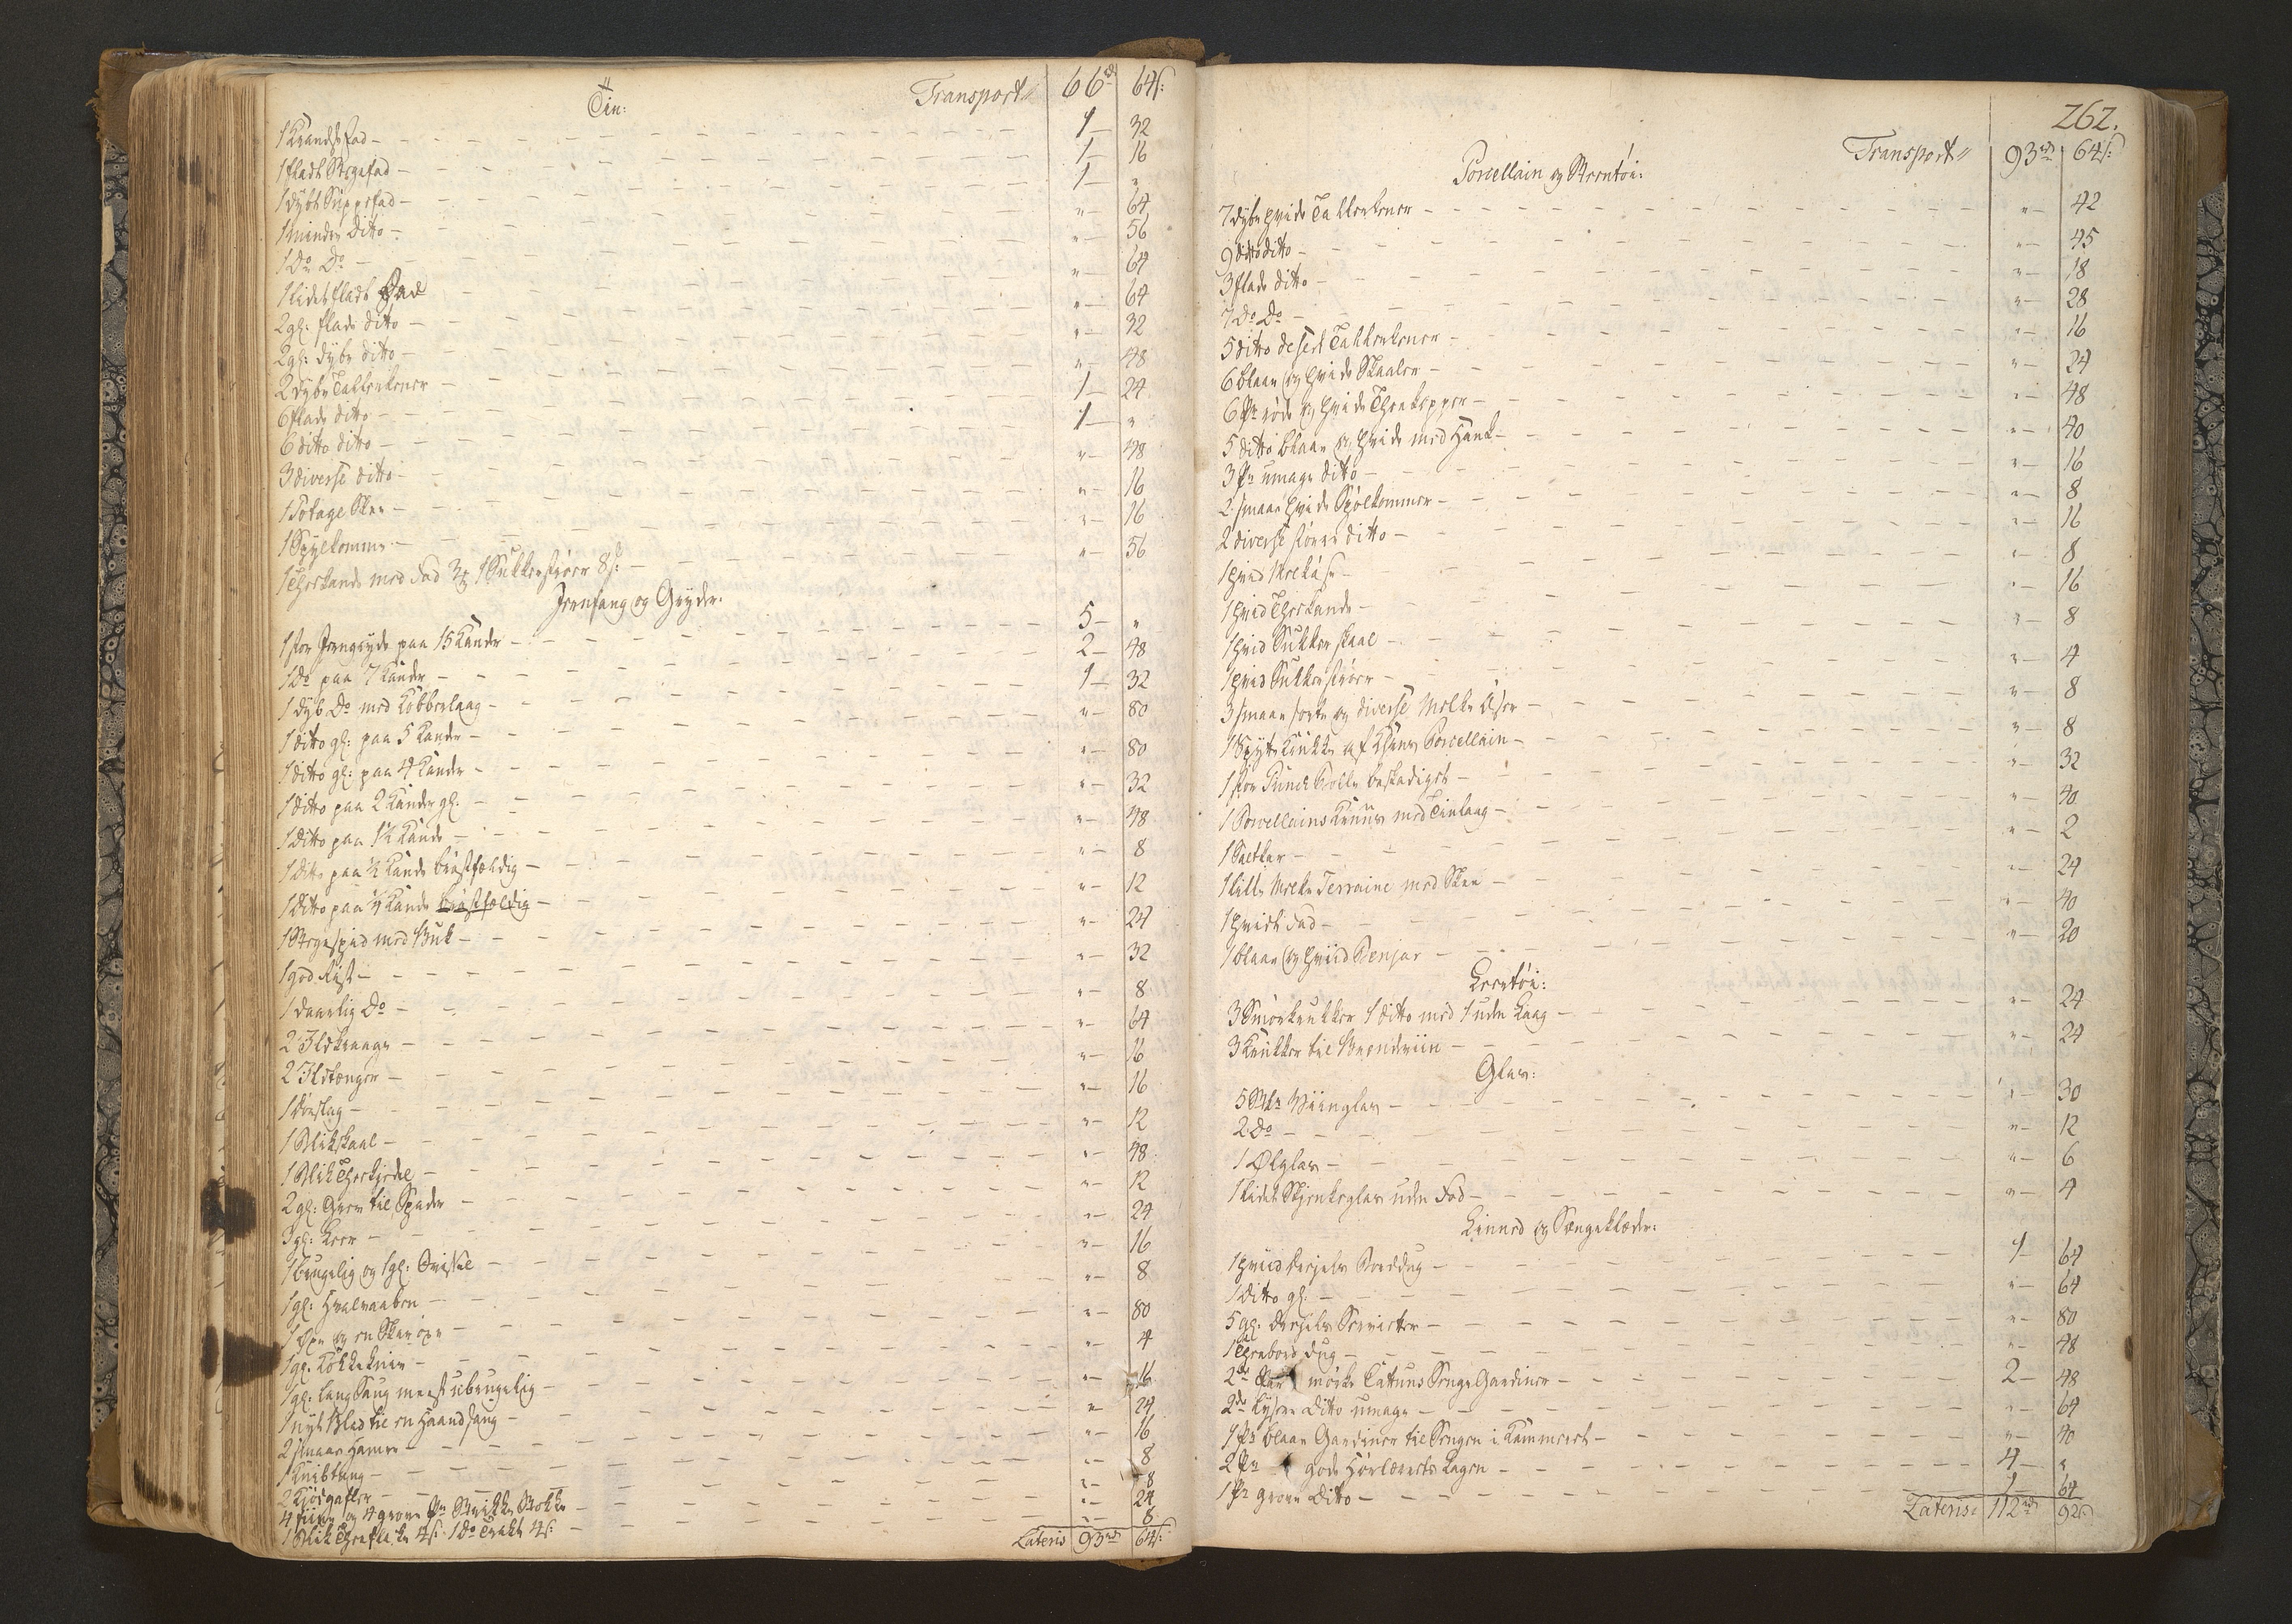 Tin: Transport 66 rd 64 s:
1 Krandsfad — 1 — 32
1 fladt Stegefad — 1 — 16
1 dybt Suppefad — 1 — "
1 mindre Ditto — " — 64
1 Do Do — " — 56
1 lidet fladt Fad — " — 64
2 gl: flade ditto — " — 64
2 gl: dybe ditto — " — 32
2 dybe Tallerkener — " — 48
6 flade ditto — 1 — 24
6 ditto ditto — 1 — "
3 diverse ditto — " — 48
1 Potage Skee — " — 16
1 Spylkomme — " — 16
1 Theekande med Fad 3 1 Sukkerstrøer 8 s: — " — 56
Jernfang og Gryder:
1 stor Jerngryde paa 15 Kander — 5 — "
1 Do paa 7 Kander — 2 — 48
1 dyb Do med Kobberlaag — 1 — 32
1 ditto gl: paa 5 Kander — " — 80
1 ditto gl: paa 4 Kander — " — 80
1 ditto paa 2 Kander gl. — " — 32
1 Ditto paa 1½ Kande — " — 48
1 Ditto paa ½ Kande brøstfældig — " — 8
1 Ditto paa ¼ Kande brøstfældig — " — 12
1 Stegespid med Buk — " — 24
1 god Rist — " — 32
1 daarlig Do — " — 8
2 Ildkrage — " — 64
2 Ildtænger — " — 16
1 Dørslag — " — 16
1 Blikskaal — " — 12
1 Blik Theekjedel — " — 48
2 gl: til Spader — " — 12
3 gl: Leer — " — 24
1 brugelig og 1 gl: — " — 16
1 gl: — " — 8
1 Øxe og en Skarøxe — " — 80
1 gl: Køkkekniv — " — 4
1 gl: lang Saug meest ubrugelig — " — 16
1 nyt Blad til en Haandsaug — " — 24
2 smaae Hamre — " — 16
1 Knibtang — " — 8
2 Kjødgafler — " — 8
4 fiine og 4 grove Pr Strikke Stokke — " — 24
1 Blik Theeflaske 4 s: 1 Do Tragt 4 s: — " — 8
Lateris 93 rd 64 s:
262.
Transport 93 rd 64 s:
Porcellain og Steentøi:
7 dybe hvide Tallerkener — " — 42
9 ditto ditto — " — 45
3 flade ditto — " — 18
7 Do Do — " — 28
5 ditto desert Tallerkener — " — 16
6 blaae og hvide Skaaler — " — 24
6 Pr røde og hvide Theekopper — " — 48
5 ditto blaae og hvide med Hank — " — 40
3 Pr umage ditto — " — 16
2 smaae hvide Spølkommer — " — 8
2 diverse større ditto — " — 16
1 hvid — " — 8
1 hvid Theekande — " — 16
1 hvid Sukkerskaal — " — 8
1 hvid Sukkerstrøer — " — 4
3 smaae sorte og diverse Melke — " — 8
1 Spytkrukke af Porcellain — " — 8
1 stor Punch Bolle beskadiget — " — 32
1 Porcellains Kruus med Tinlaag — " — 40
1 Saltkar — " — 2
1 lille Melke Terraine med Skee — " — 24
1 hvidt Fad — " — 40
1 blaae og hviid — " — 20
Leertøi:
3 Smørkrukker 1 ditto med 1 uden Laag — " — 24
3 Krukker til Brændeviin — " — 24
Glas:
5 Stkr Viinglas — " — 30
2 Do — " — 12
1 Ølglas — " — 6
1 lidet Skjenkeglas uden Fod — " — 4
Linned og Sængeklæder:
1 hviid Dreiels Borddug — 1 — 64
1 Ditto gl. — " — 64
5 gl: dreiels Servietter — " — 80
1 Theebords dug — " — 48
2de Par mørke Cattuns Senge Gardiner — 2 — 48
2de lysere Ditto umage — " — 64
1 Pr blaae Gardiner til Sengen i Kammeret — " — 40
2 Pr gode Hørlærreds Lagen — 4 — "
1 Pr grove Ditto — 1 — 64
Lateris 112 rd 92 s: